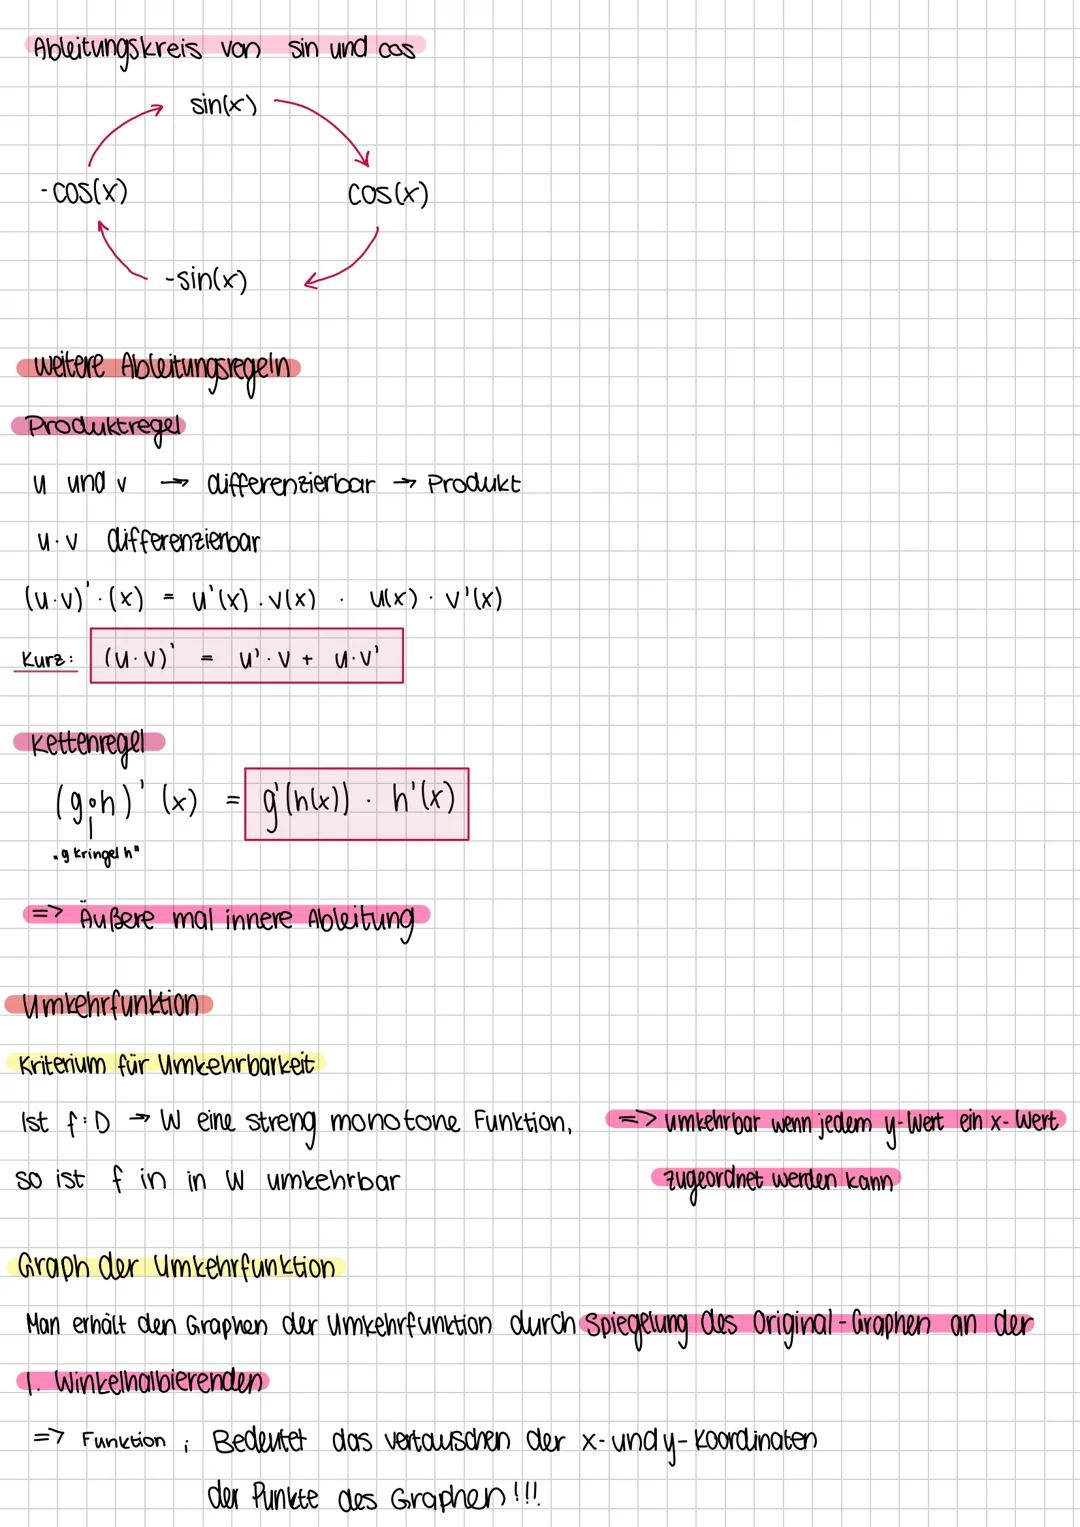 Ableitungskreis von sin und cos
sin(x)
-cos(x) cos(x)
-sin(x)
weitere Ableitungsregeln
Produktregel
u und v → differenzierbar → Produkt
u·v differenzierbar
(u·v)'·(x) = u'(x)·v(x) · u(x)·v'(x)
Kurz: (u·v)' = u'·v + u·v'
Kettenregel
(g∘h)'(x) = g'(h(x)) · h'(x)
"g kringel h"
=> Äußere mal innere Ableitung
Umkehrfunktion
Kriterium für Umkehrbarkeit
Ist f: D → W eine streng monotone Funktion, => umkehrbar wenn jedem y-Wert ein x-Wert
so ist f in in W umkehrbar zugeordnet werden kann
Graph der Umkehrfunktion
Man erhält den Graphen der Umkehrfunktion durch Spiegelung des Original-Graphen an der
1. Winkelhalbierenden
=> Funktion ; Bedeutet das vertauschen der x- und y-Koordinaten
der Punkte des Graphen!!!